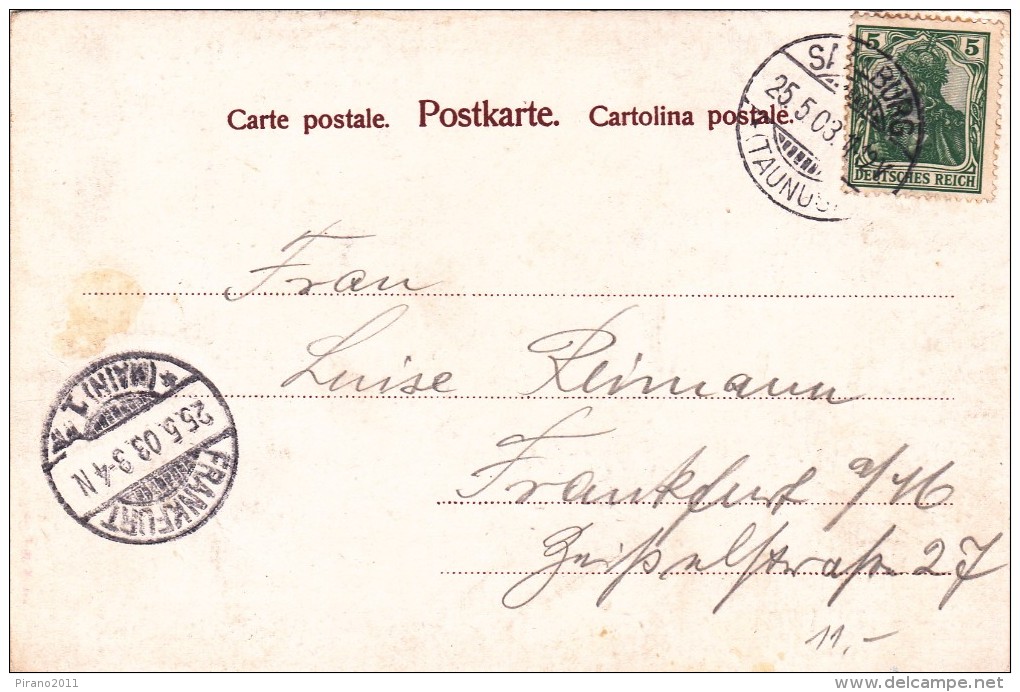 5 5
DEUTSCHES REICH
SAALBURG
25.5.03.
(TAUNUS)
Carte postale. Postkarte. Cartolina postale.
Frau
Luise Reimann
Frankfurt a/M
27
FRANKFURT
25.5.03.3-4 N
* (MAIN) 1
11.-
Pirano2011
delcampe.net